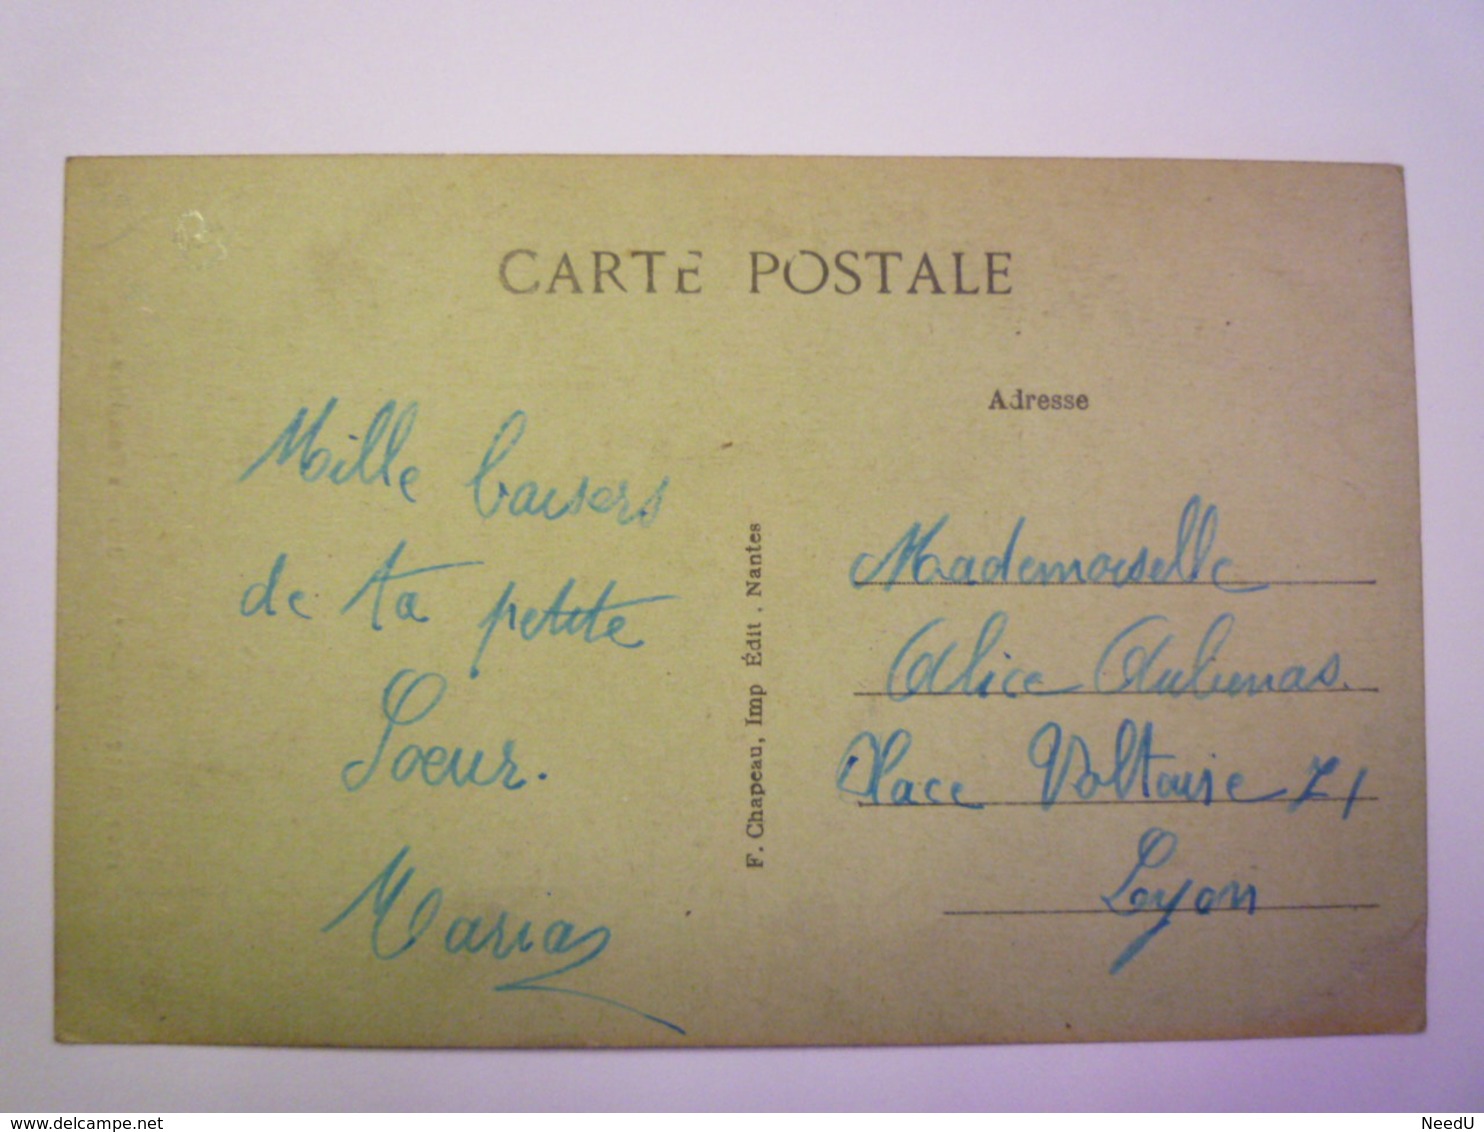 CARTE POSTALE
Mille baisers
de ta petite
Soeur.
Maria
F. Chapeau, Imp Édit . Nantes
Adresse
Mademoiselle
Alice Aubenas.
Place Voltaire 71
Lyon
delcampe.net
NeedU